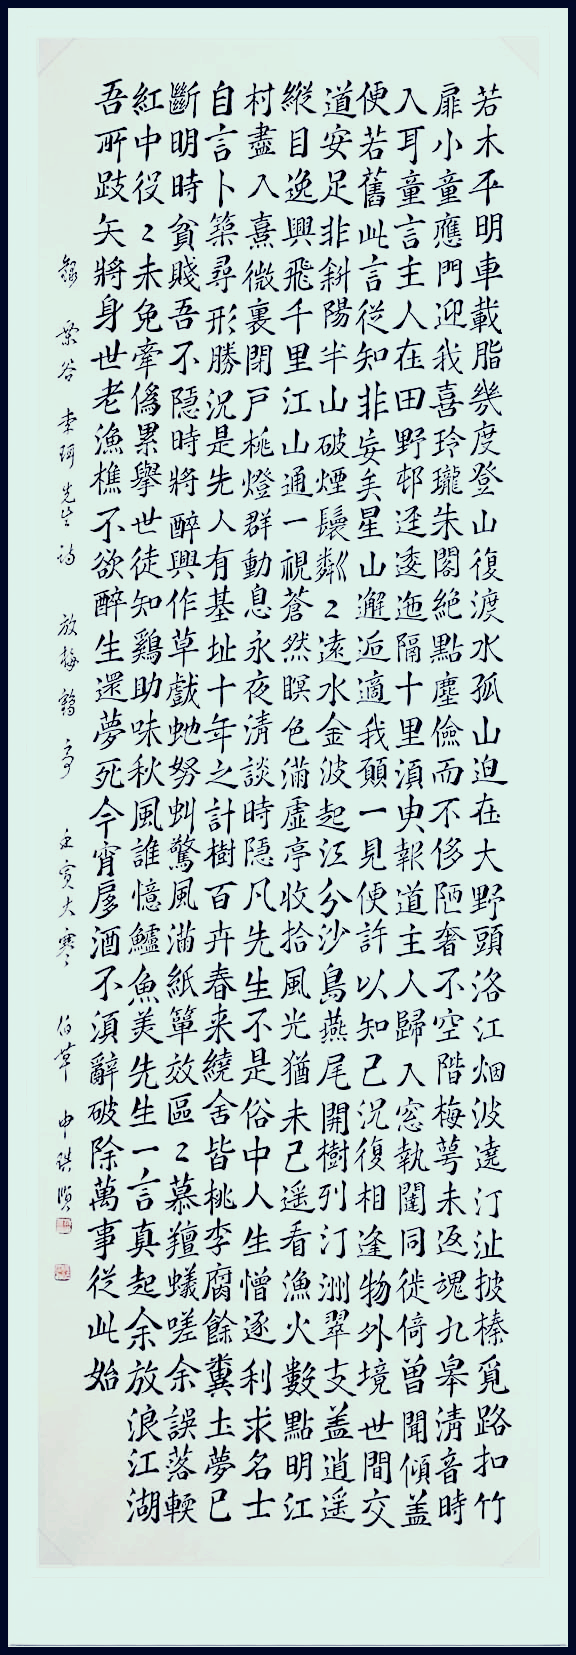 若木平明車載脂幾度登山復渡水孤山迫在大野頭洛江烟波遶汀沚披榛覓路扣竹
扉小童應門迎我喜玲瓏朱閣絶點塵儉而不侈陋奢不空階梅萼未返魂九皋淸音時
入耳童言主人在田野邨逕逶迤隔十里湏臾報道主人歸入窓執闥同徙倚曾聞傾盖
便若舊此言從知非妄矣星山邂逅適我願一見便許以知己況復相逢物外境世間交
道安足非斜陽半山破煙鬟粼〻遠水金波起江分沙鳥燕尾開樹列汀洲翠支盖逍遥
縱目逸興飛千里江山通一視蒼然暝色滿虛亭收拾風光猶未己遥看漁火數點明江
村盡入熹微裏閉戸桃燈群動息永夜淸談時隱凡先生不是俗中人生憎逐利求名士
自言卜築尋形勝況是先人有基址十年之計樹百卉春来繞舍皆桃李腐餘糞土夢已
斷明時貧賤吾不隱時將醉興作草戲虵努虯驚風滿紙簞效區〻慕羶蟻嗟余誤落輭
紅中役〻未免牽僞累擧世徒知鷄助味秋風誰憶鱸魚美先生一言真起余放浪江湖
吾所跂矢將身世老漁樵不欲醉生還夢死今宵扅酒不湏辭破除萬事從此始
錄 栗谷 李珥 先生 詩 放梅鶴亭 壬寅大寒 伯草 申琪順